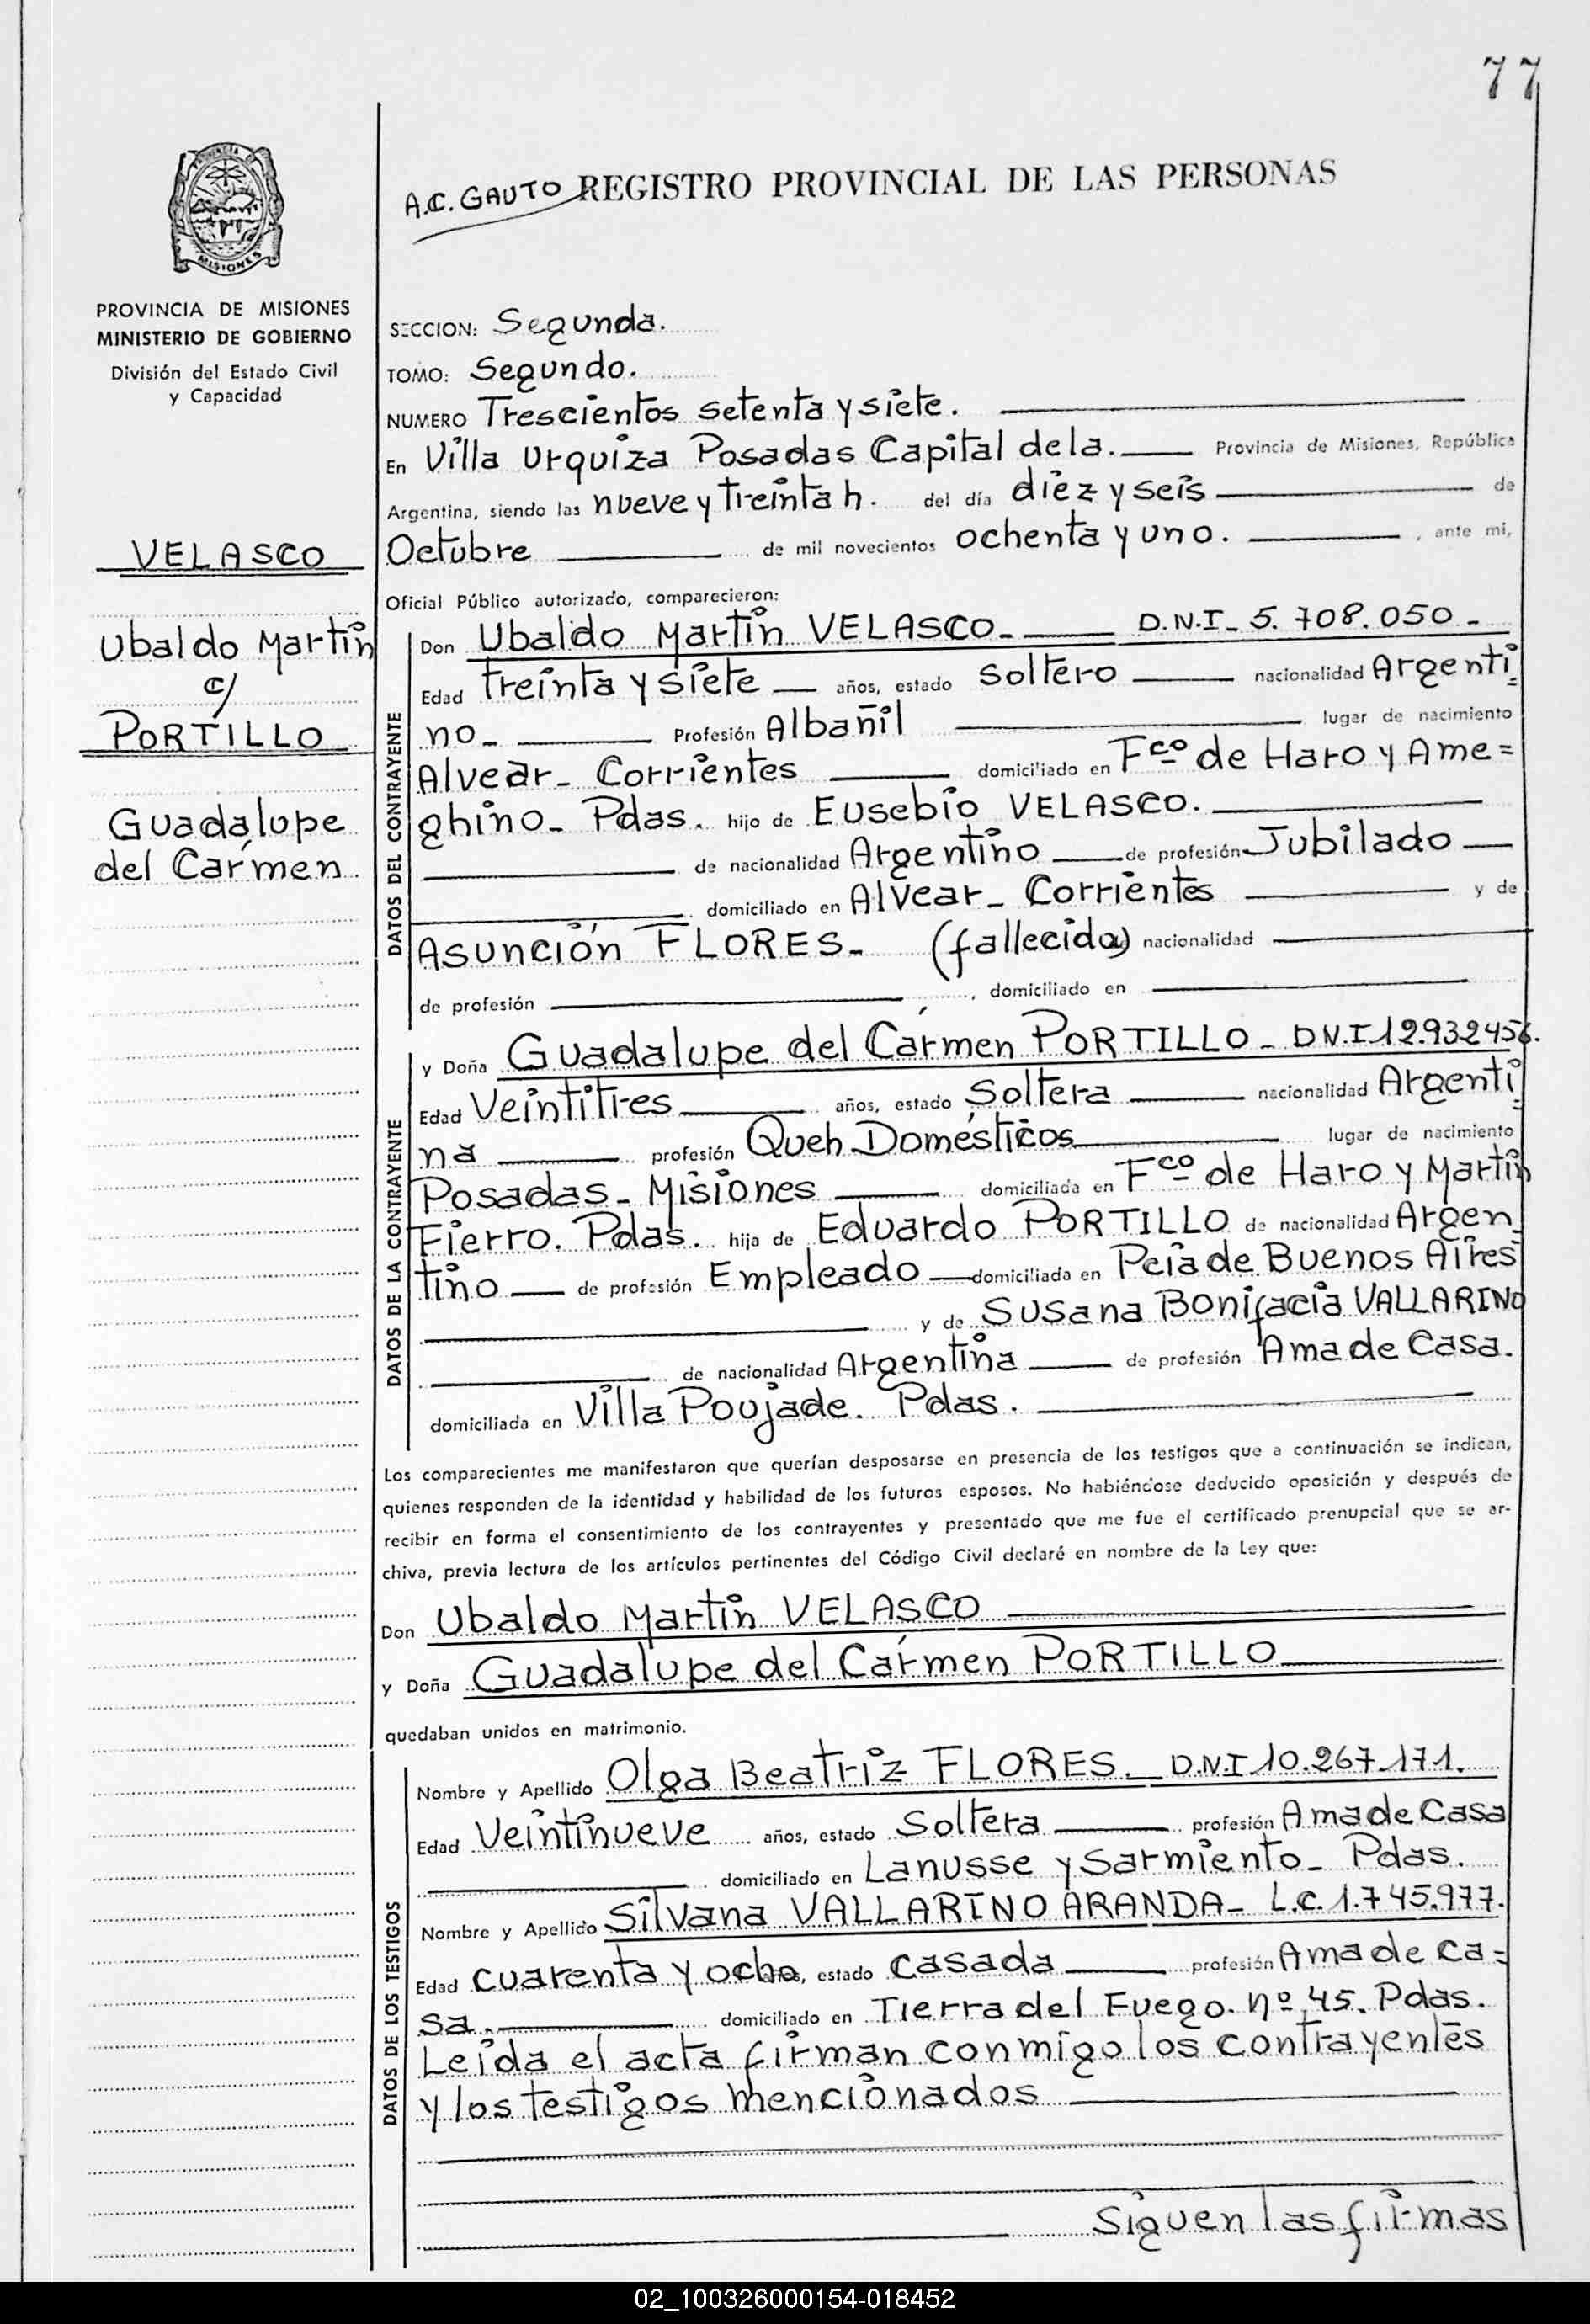 77
A.C. GAUTO REGISTRO PROVINCIAL DE LAS PERSONAS
PROVINCIA
MISIONES
PROVINCIA DE MISIONES
MINISTERIO DE GOBIERNO
División del Estado Civil
y Capacidad
VELASCO
Ubaldo Martin
c/
PORTILLO
Guadalupe
del Cármen
SECCION: Segunda.
TOMO: Segundo.
NUMERO Trescientos setenta y siete.
En Villa Urquiza Posadas Capital de la. Provincia de Misiones, República
Argentina, siendo las nueve y treinta h. del día diez y seis de
Octubre de mil novecientos ochenta y uno. , ante mi,
Oficial Público autorizado, comparecieron:
DATOS DEL CONTRAYENTE
Don Ubaldo Martin VELASCO - D.N.I - 5.708.050 -
Edad treinta y siete años, estado soltero nacionalidad Argenti
no - Profesión Albañil lugar de nacimiento
Alvear - Corrientes domiciliado en Fco de Haro y Ame=
ghino - Pdas. hijo de Eusebio VELASCO.
de nacionalidad Argentino de profesión Jubilado
domiciliado en Alvear - Corrientes y de
Asunción FLORES - (fallecida) nacionalidad
de profesión , domiciliado en
DATOS DE LA CONTRAYENTE
y Doña Guadalupe del Cármen PORTILLO - DN.I 12.932456.
Edad Veintitres años, estado Soltera nacionalidad Argenti
na profesión Queh. Domésticos lugar de nacimiento
Posadas - Misiones domiciliada en Fco de Haro y Martin
Fierro. Pdas. hija de Eduardo PORTILLO de nacionalidad Argen
tino de profesión Empleado domiciliada en Pcia de Buenos Aires
y de Susana Bonifacia VALLARINO
de nacionalidad Argentina de profesión Ama de Casa.
domiciliada en Villa Poujade. Pdas.
Los comparecientes me manifestaron que querían desposarse en presencia de los testigos que a continuación se indican,
quienes responden de la identidad y habilidad de los futuros esposos. No habiéndose deducido oposición y después de
recibir en forma el consentimiento de los contrayentes y presentado que me fue el certificado prenupcial que se ar-
chiva, previa lectura de los artículos pertinentes del Código Civil declaré en nombre de la Ley que:
Don Ubaldo Martin VELASCO
y Doña Guadalupe del Cármen PORTILLO
quedaban unidos en matrimonio.
DATOS DE LOS TESTIGOS
Nombre y Apellido Olga Beatriz FLORES. - D.N.I 10.267.171.
Edad Veintinueve años, estado Soltera profesión Ama de Casa
domiciliado en Lanusse y Sarmiento - Pdas.
Nombre y Apellido Silvana VALLARINO ARANDA - L.C. 1.745.977.
Edad cuarenta y ocho años, estado casada profesión Ama de ca=
sa. domiciliado en Tierra del Fuego. nº 45. Pdas.
Leida el acta firman conmigo los contrayentes
y los testigos mencionados
Siguen las firmas
02_100326000154-018452